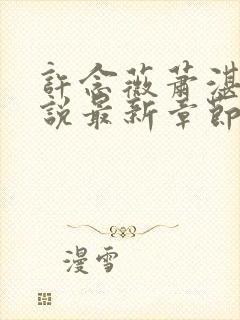 許念薇蕭湛
說最新章節
漫雪